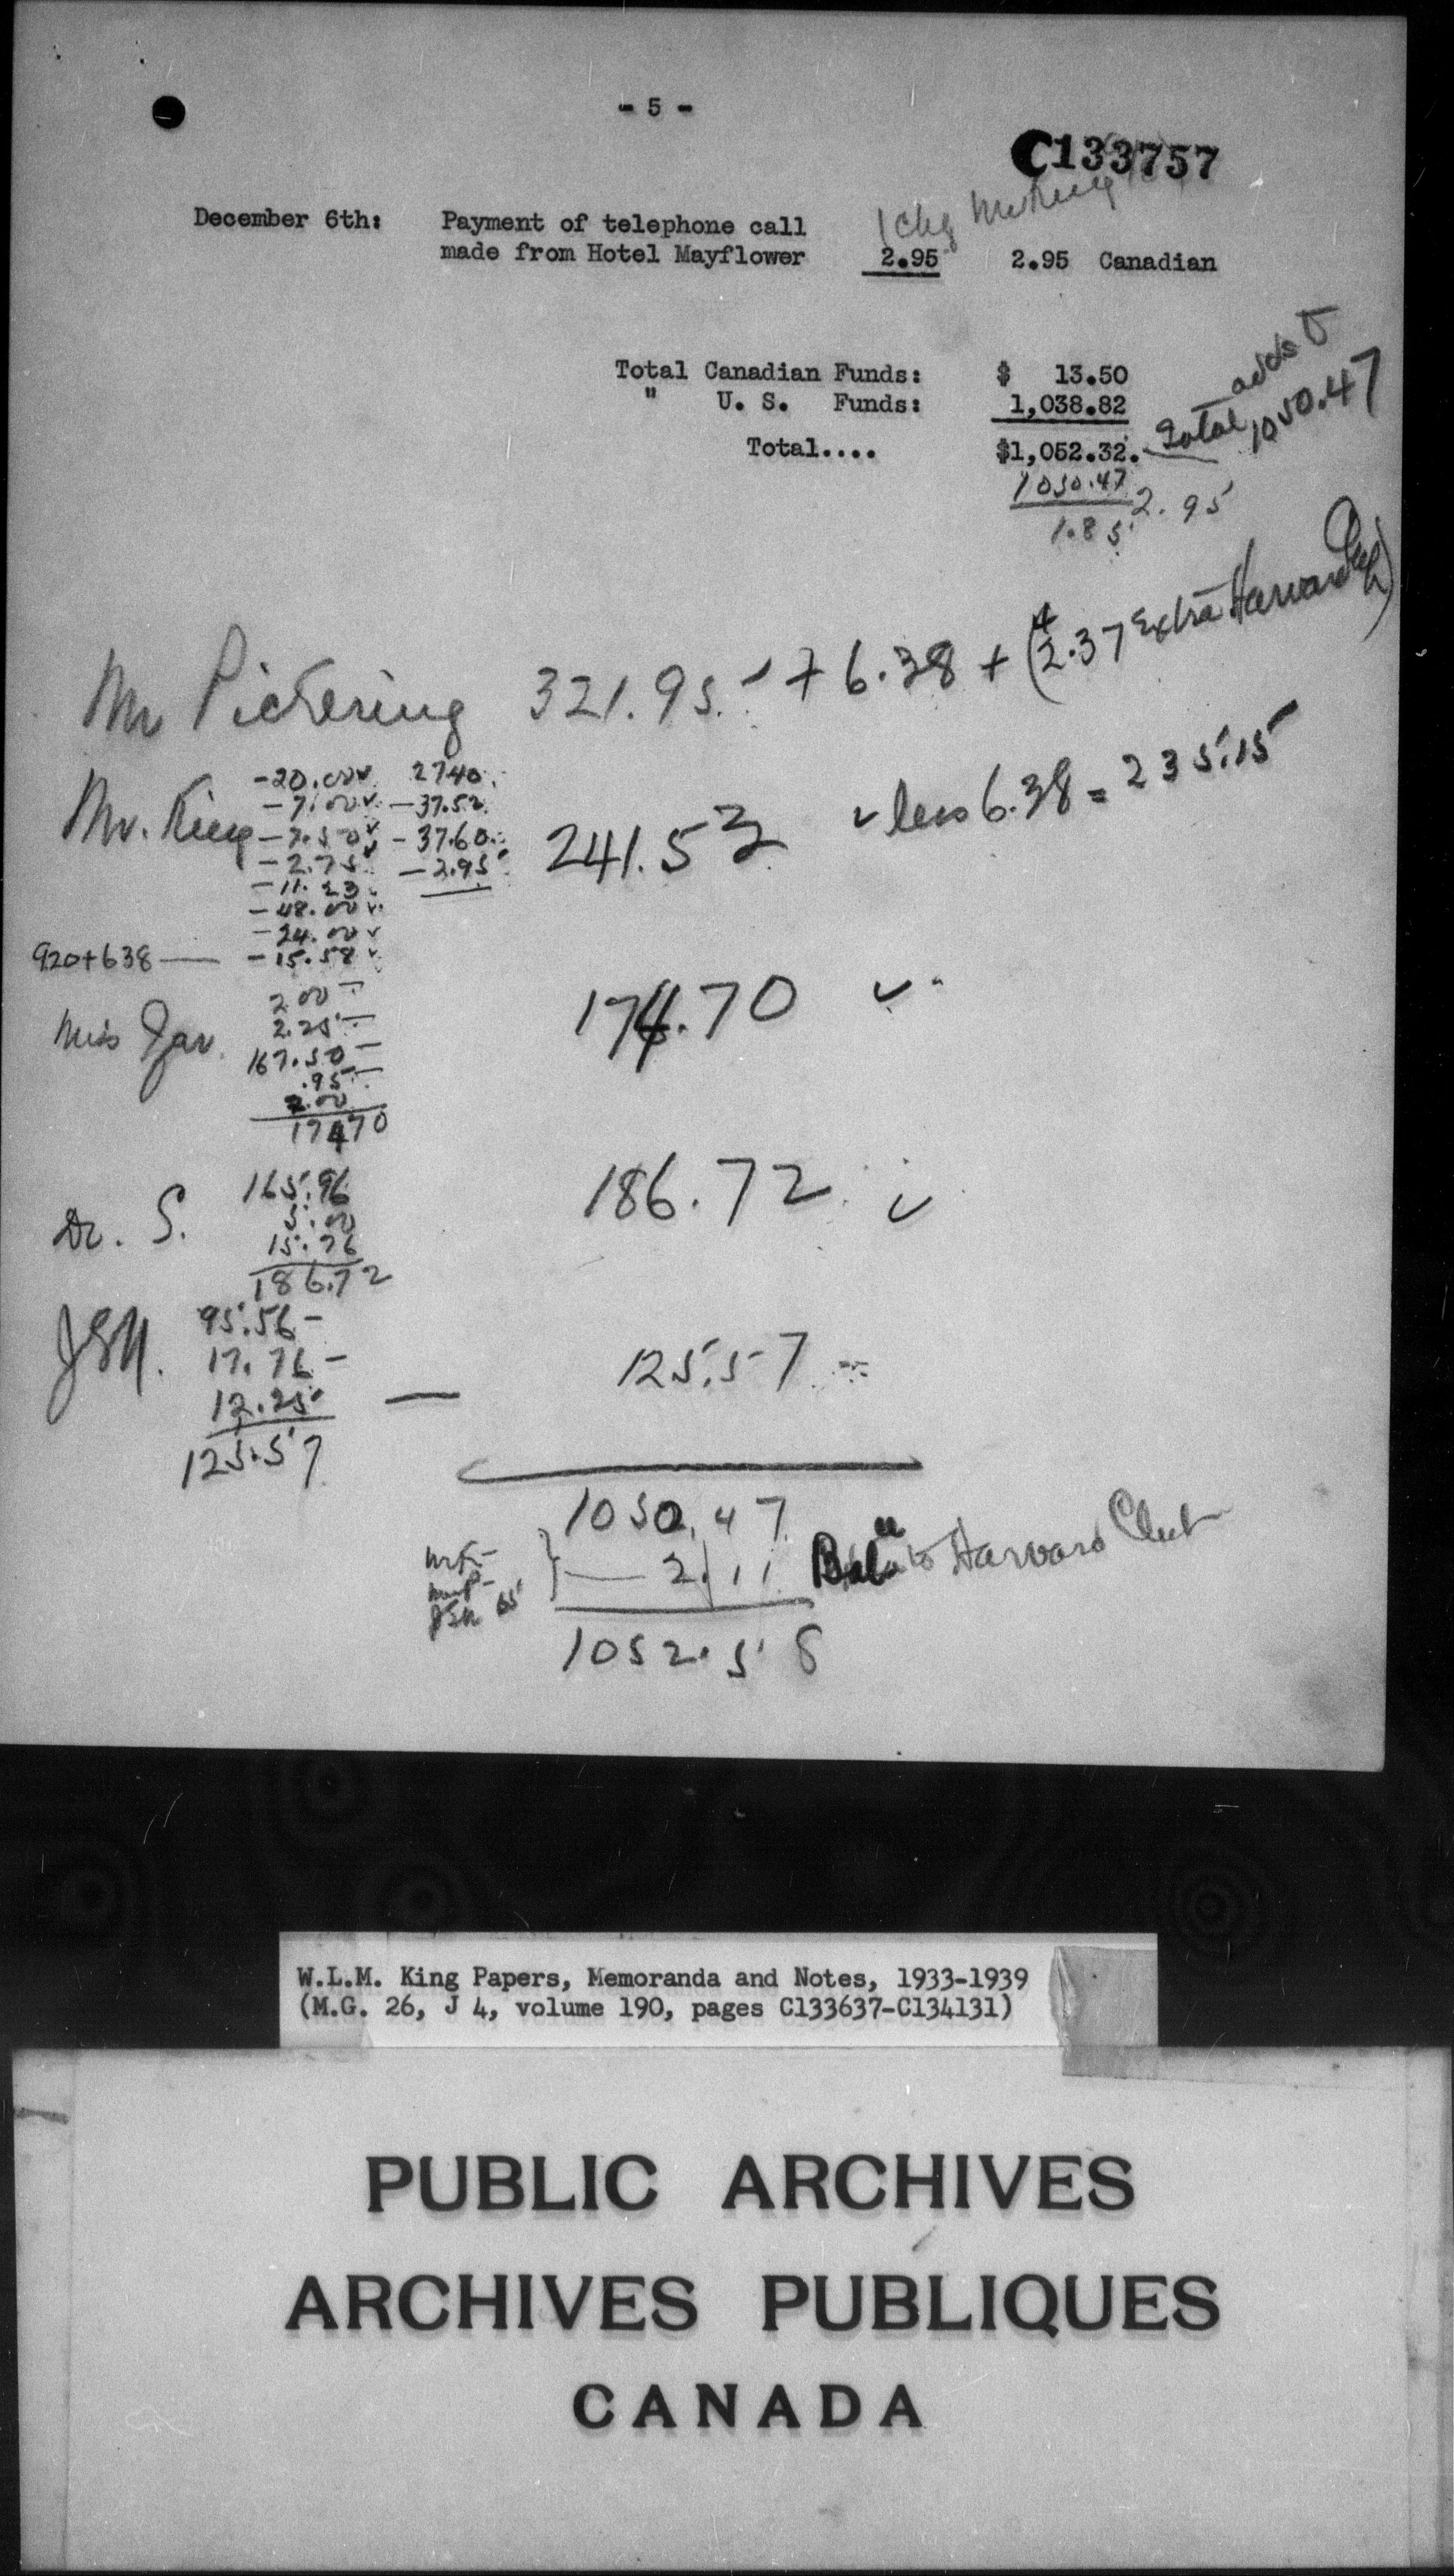 - 5 -
C133757
(Chg Mr King)
December 6th: Payment of telephone call
made from Hotel Mayflower 2.95 2.95 Canadian
Total Canadian Funds: $ 13.50
" U. S. Funds: 1,038.82
Total.... $1,052.32.
Total adds to
1050.47
1050.47
1.85 2.95
Mr Pickering 321.95 + 6.38 + (2.37 Extra Harvard Club)
Mr. King 241.53 less 6.38 = 235.15
-20.00 2740
-7.00 -37.52
-7.50 -37.60
-2.75 -2.95
-11.23
-48.00
-24.00
920+638 — -15.58
Miss Zav. 174.70
2.00
2.25
167.50
.95
2.00
17470
Dr. S. 186.72
165.96
5.00
15.76
186.72
JEH. 125.57
95.56
17.76
12.25
125.57
1050.47
2.11 Balce to Harvard Club
1052.58
W.L.M. King Papers, Memoranda and Notes, 1933-1939
(M.G. 26, J 4, volume 190, pages C133637-C134131)
PUBLIC ARCHIVES
ARCHIVES PUBLIQUES
CANADA